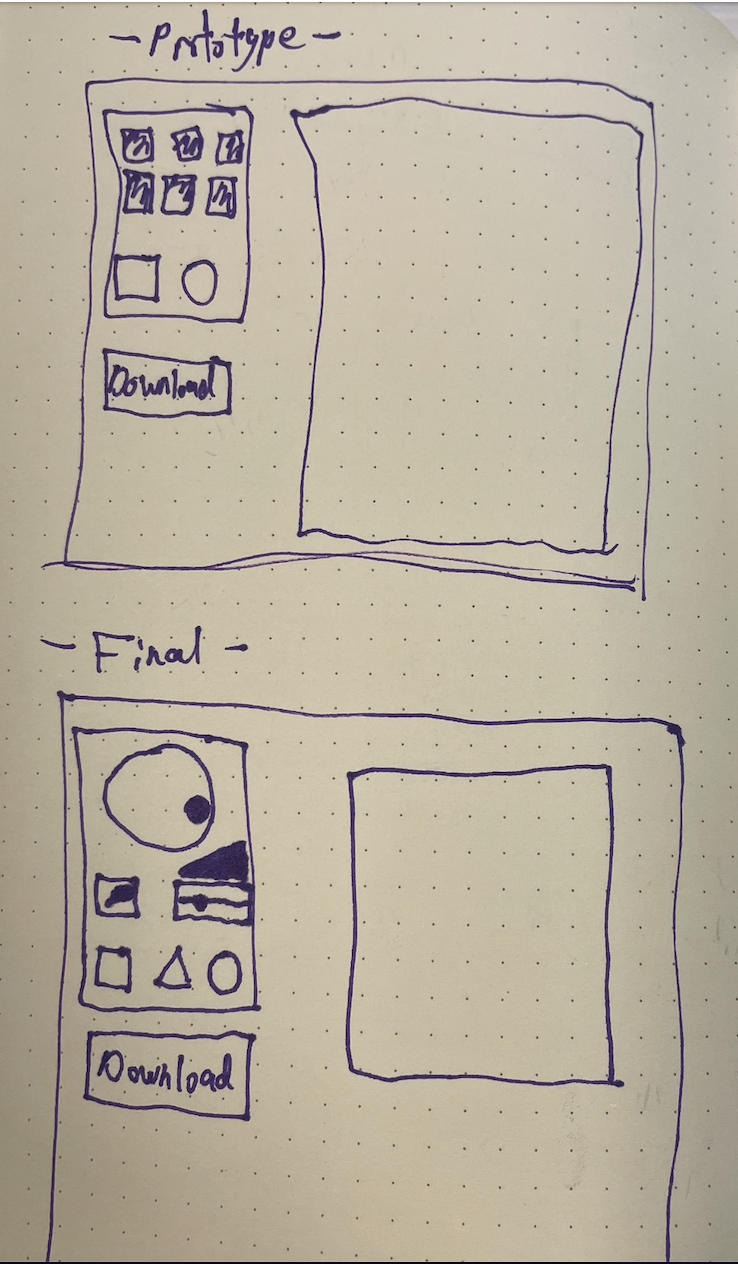 - Prototype -
Download
- Final -
Download